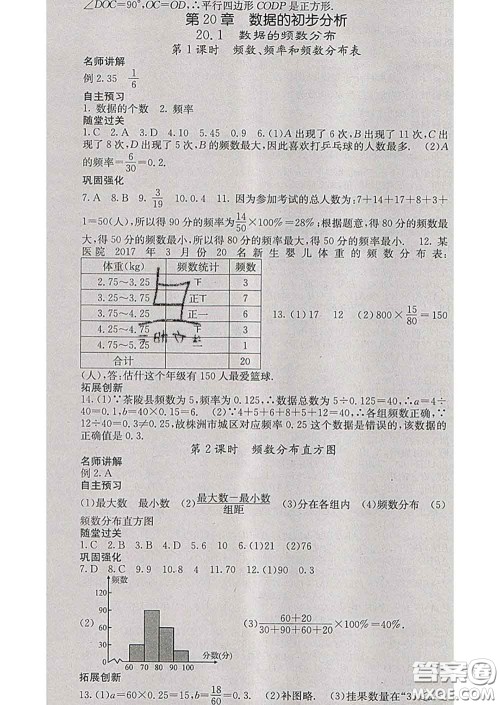 ∠DOC=90°,OC=OD,∴平行四边形 CODP 是正方形.
第 20 章　数据的初步分析
20.1　数据的频数分布
第 1 课时　频数、频率和频数分布表
名师讲解
例 2.35　1/6
自主预习
1. 数据的个数　2. 频率
随堂过关
1.C　2.A　3.D　4.10　5.45　0.9　6.(1)A 出现了 6 次,B 出现了 11 次,C 出
现了 8 次,D 出现了 5 次,B 的频数最大,因此喜欢打乒乓球的人数最多.　(2)A
的频率=6/30=0.2.
巩固强化
7.A　8.B　9.3/19　10.0.4　11. 因为参加考试的总人数为:7+14+17+8+3+
1=50(人),所以得 90 分的频率为14/50×100%=28%;根据题意,得 80 分的频数最
大,得 50 分的频数最小,所以得 80 分的频率最大,得 50 分的频率最小.　12. 某
医院 2017 年 3 月份 20 名新生婴儿体重的频数分布表:
体重(kg)　频数统计　频数
2.75～3.25　下　3
3.25～3.75　正丅　7
3.75～4.25　正一　6
4.25～4.75　3
4.75～5.25　一　1
合计　20
13.(1)17　12　(2)800×15/80=150
(人),答:估计这个年级有 150 人最爱篮球.
拓展创新
14.(1)∵茶陵县频数为 5,频率为 0.125,∴数据总数为 5÷0.125=40,∴a=4÷
40=0.1,b=40×0.15=6.　(2)∵4+5+6+8+5+12=40,∴各组频数正确,∵
12÷40=0.3≠0.275,故株洲市城区对应频率 0.25 这个数据是错误的,该数据的
正确值是 0.3.
第 2 课时　频数分布直方图
名师讲解
例 2.A
自主预习
(1)最大数　最小数　(2)最大数－最小数/组距　(3)分在各组内　(4)频数分布　(5)
频数分布直方图
随堂过关
1.C　2.B　3.B　4.D　5.6　6.(1)21　(2)76
巩固强化
7.D　8.C　9.9　10.8　4　11.70　12.(1)90　0.3
(2)
频数
120
90
60
30
60 70 80 90 100 分数(分)
(3)60+20/30+90+60+20×100%=40%.
拓展创新
13.(1)a=60×0.25=15,b=18/60=0.3.　(2)补图略.　(3)挂果数量在“3
答案圈
MXQE.COM